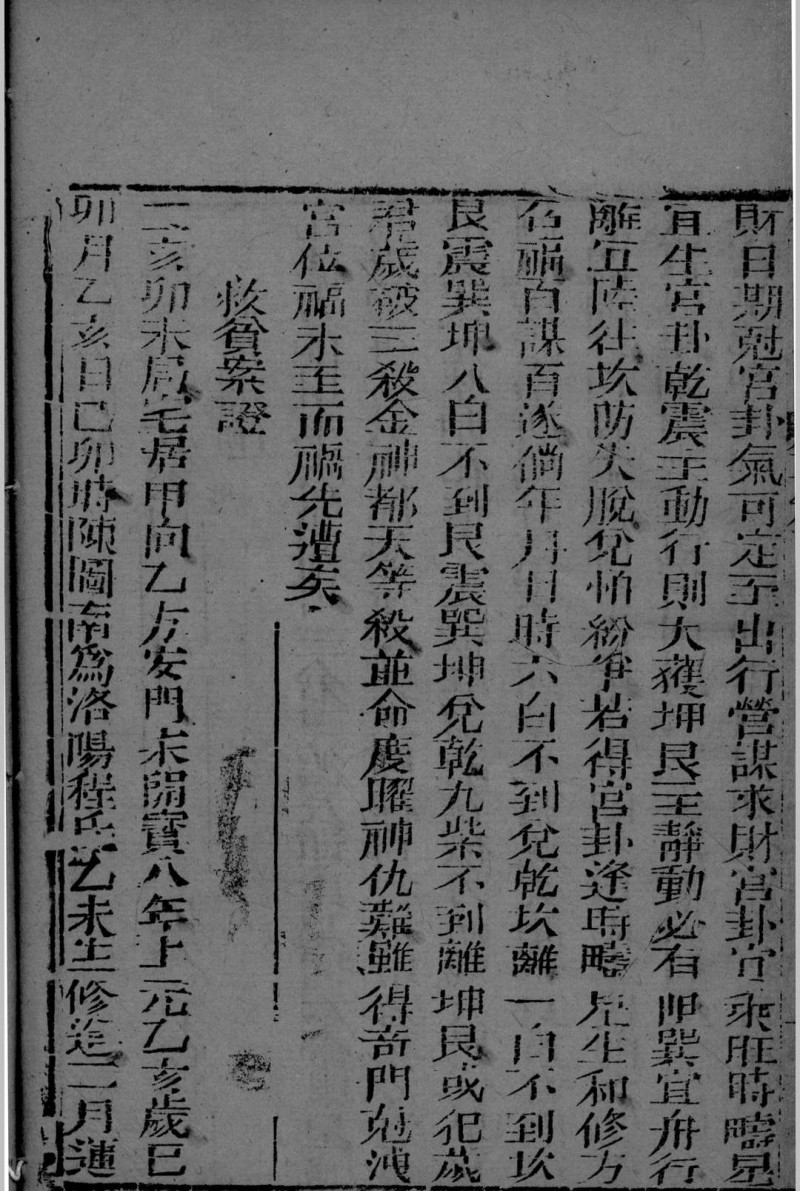 財日期尅宮卦氣可定至出行營謀求財宮卦宜乘旺時疇星
宜生宮卦乾震主動行則大獲坤艮主靜動必有 巽宜舟行
離宜陸往坎防失脫兌怕紛爭若得宮卦逢時疇星生和修方
召福百謀百遂倘年月日時六白不到兌乾坎離一白不到坎
艮震巽坤八白不到艮震巽坤兌乾九紫不到離坤艮或犯歲
君歲破三殺金神都天等殺並命度曜神仇難雖得奇門尅洩
宮位福未至而禍先遭矣
救貧案證
一亥卯未局宅居甲向乙方安門宋開寶八年上元乙亥歲巳
卯月乙亥日己卯時陳圖南爲洛陽程氏乙未生修造二月蓮